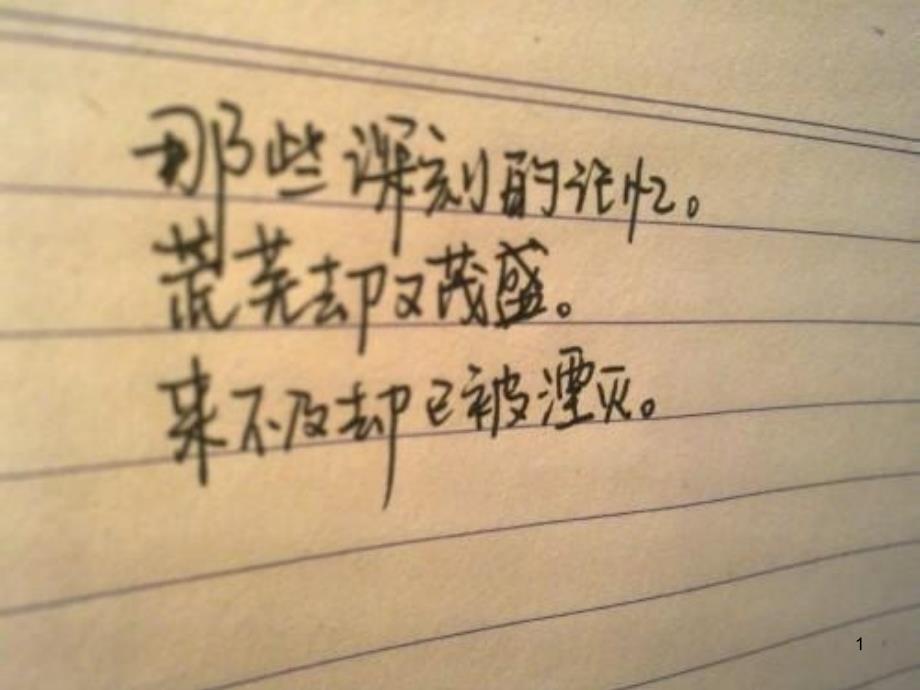 那些深刻的记忆。
荒芜却又茂盛。
来不及却已被湮灭。
1